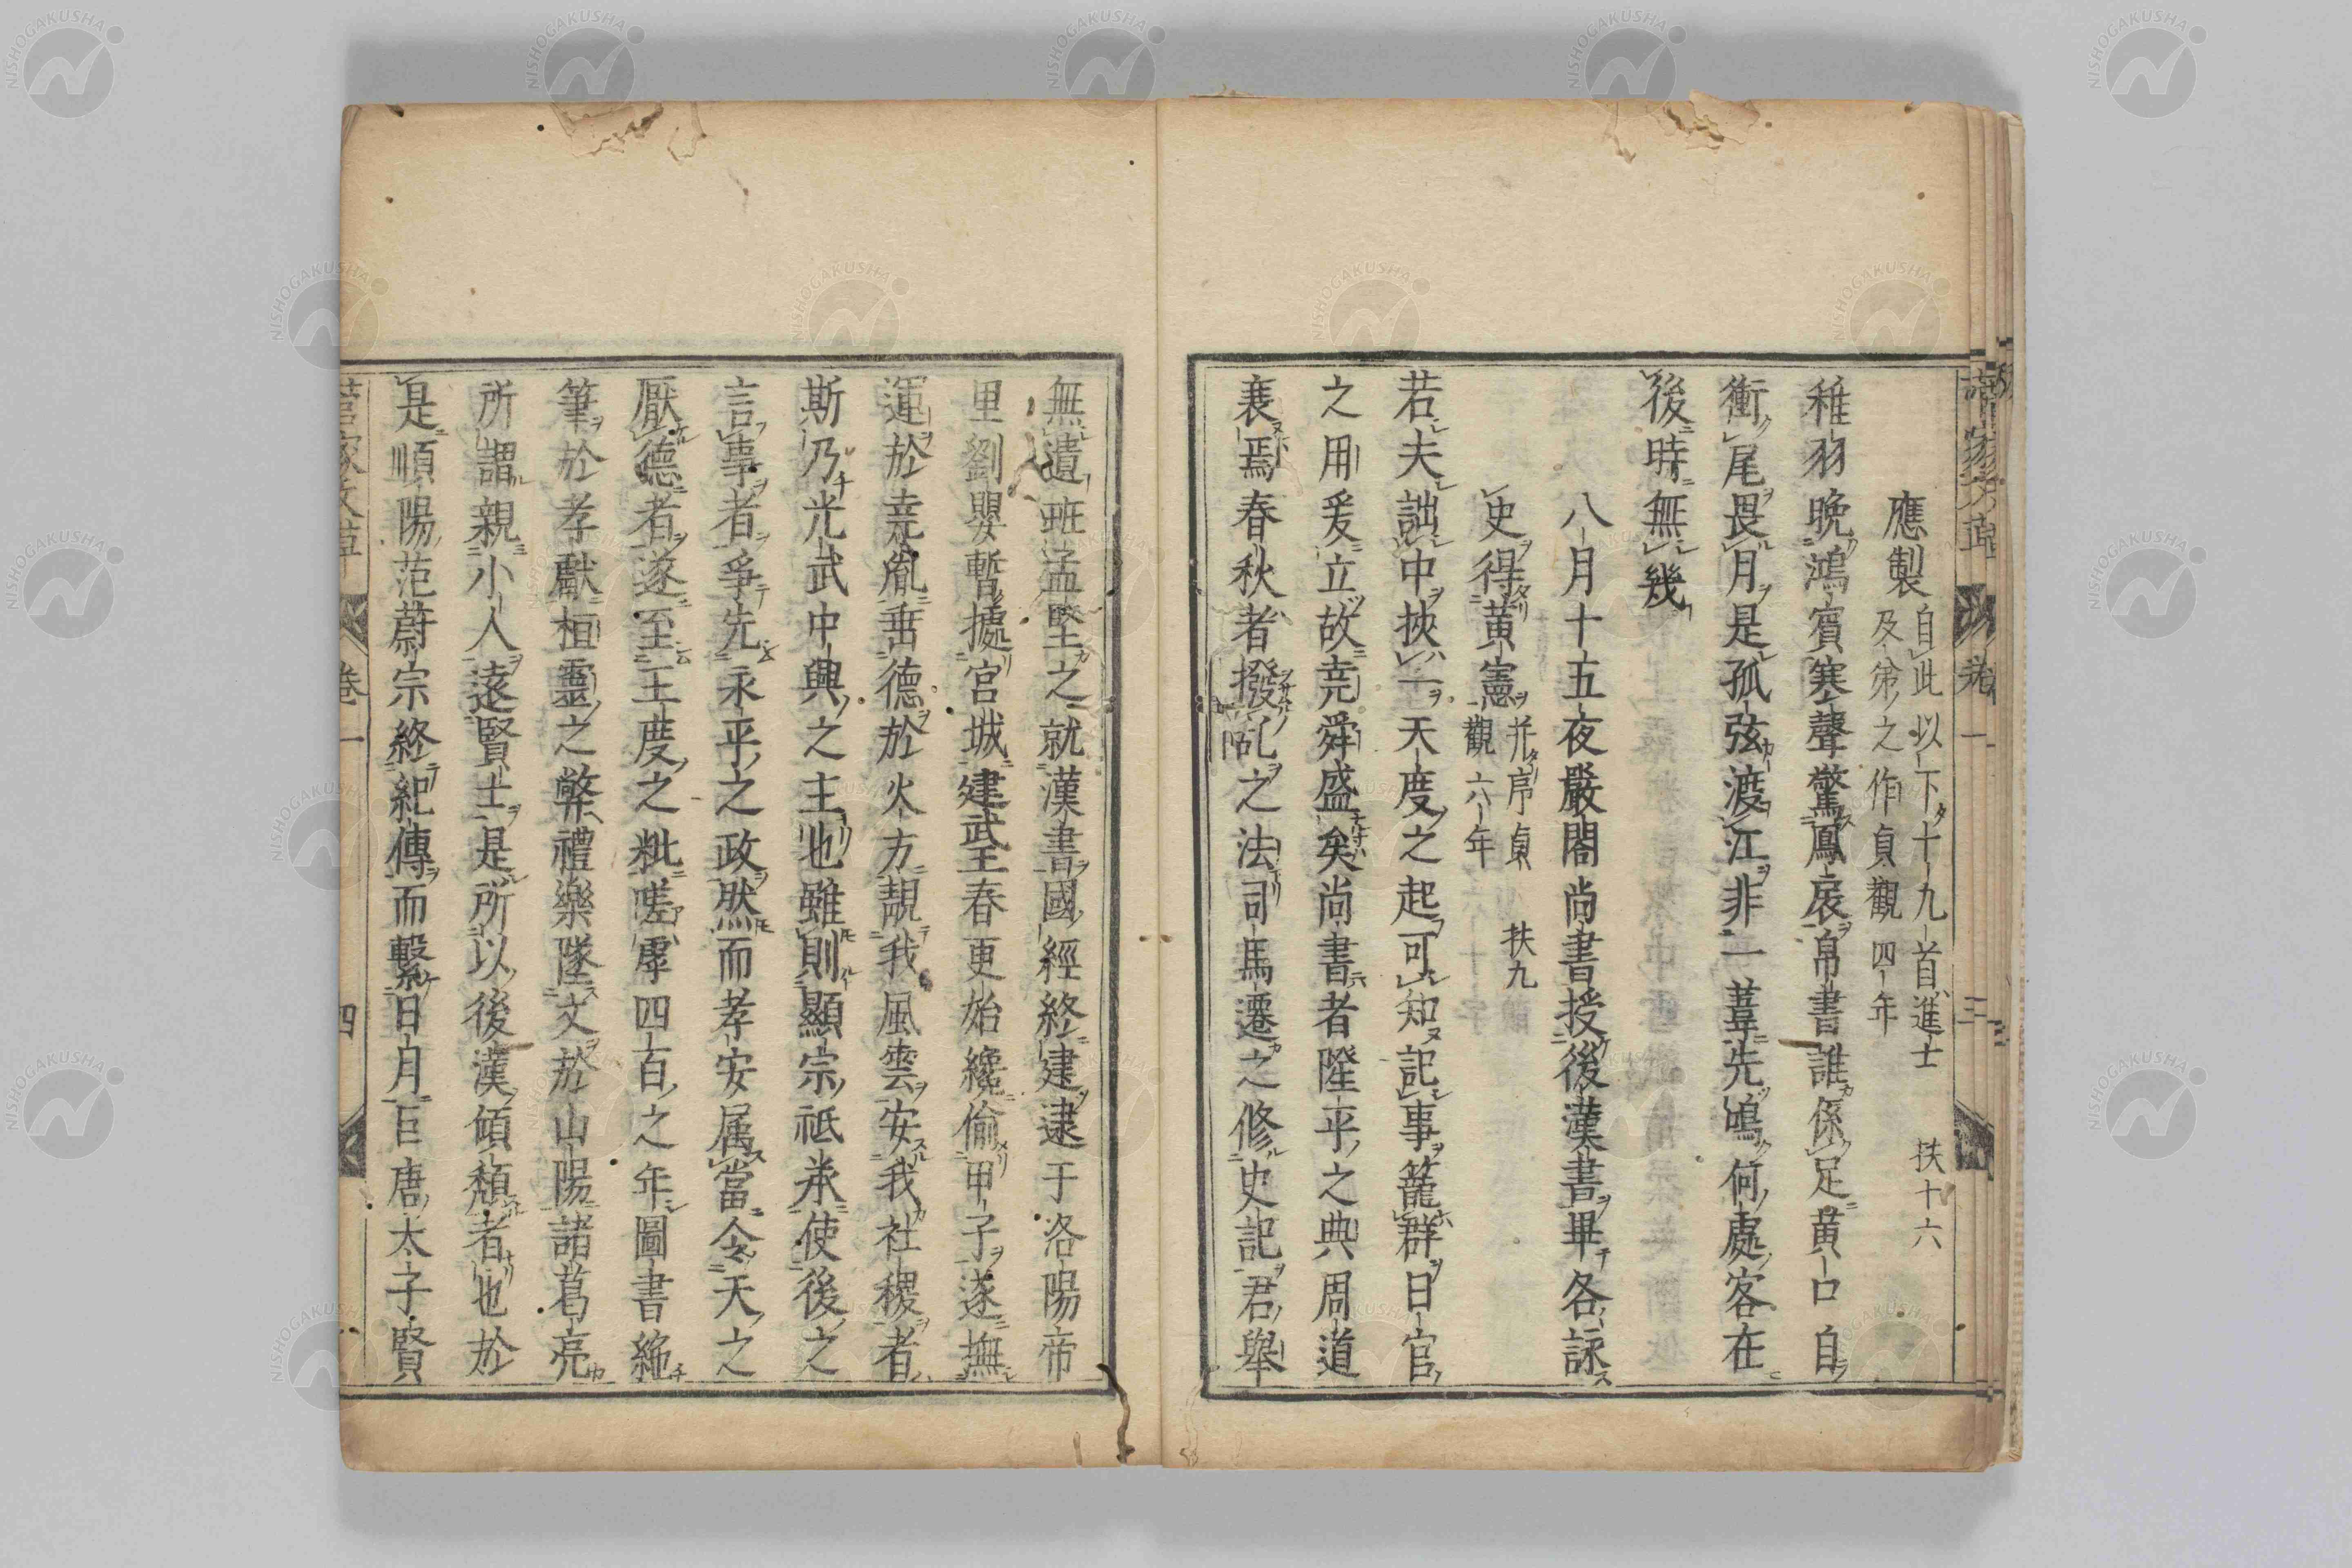 應製 自此以下十九首進士 扶十六
及第之作貞觀四年
稚羽晩鴻賓寒聲驚鳳扆帛書誰係足黄口自
衝尾畏月是孤弦渡江非一葦先鳴何處客在
後時無幾
八月十五夜嚴閤尚書授後漢書畢各詠
史得黄憲 并序貞 扶九
觀六年
若夫詘中挾一天度之起可知記事籠群日官
之用爰立故堯舜盛矣尚書者隆平之典周道
衰焉春秋者撥乱之法司馬遷之修史記君舉
無遺班孟堅之就漢書國經終建逮于洛陽帝
里劉嬰暫據宮城建武王春更始纔偷甲子遂撫
運於堯胤啚德於火方靚我風雲安我社稷者
斯乃光武中興之主也雖則顯宗祗承使後之
言事者爭先永平之政然而孝安属當令天之
厭德者遂至王度之粃嗟虖四百之年圖書絶
筆於孝獻桓靈之弊禮樂墜文於山陽諸葛亮
所謂親小人遠賢士是所以後漢傾頽者也於
是順陽范蔚宗終紀傳而繫日月巨唐太子賢
卷一 四
卷一 三
NISHOGAKUSHA